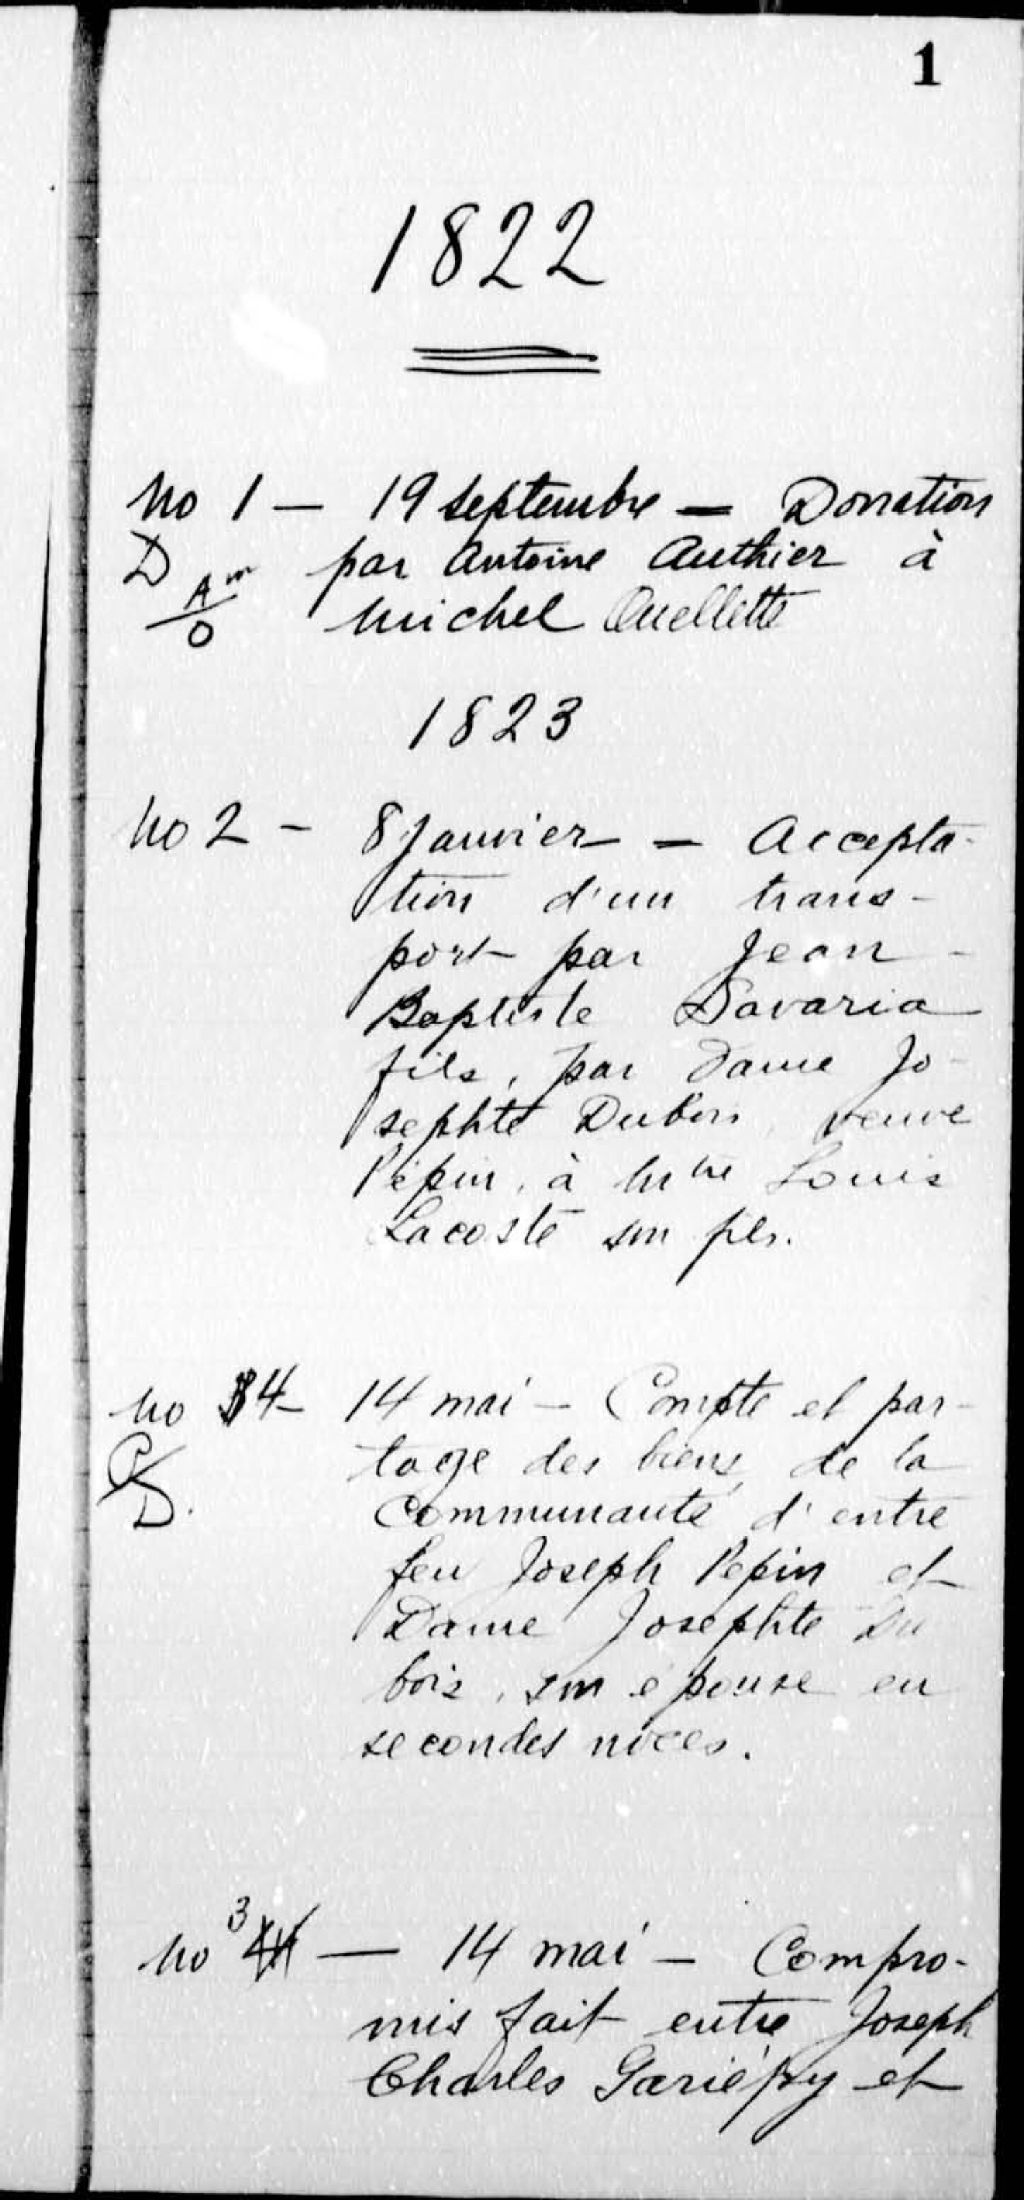 1
1822
No 1 — 19 septembre — Donation
D par Antoine Authier à
A m
O Michel Ouellette
1823
No 2 - 8 Janvier — Accepta-
tion d'un trans-
port par Jean-
Baptiste Savaria
fils, par Dame Jo-
sephte Dubois, veuve
Pépin, à Mtre Louis
Lacoste son fils.
No 4 - 14 mai — Compte et par-
P tage des biens de la
D. Communauté d'entre
feu Joseph Pepin et
Dame Josephte Du
bois, son épouse en
secondes noces.
No 3 — 14 mai — Compro-
mis fait entre Joseph
Charles Gariépy et